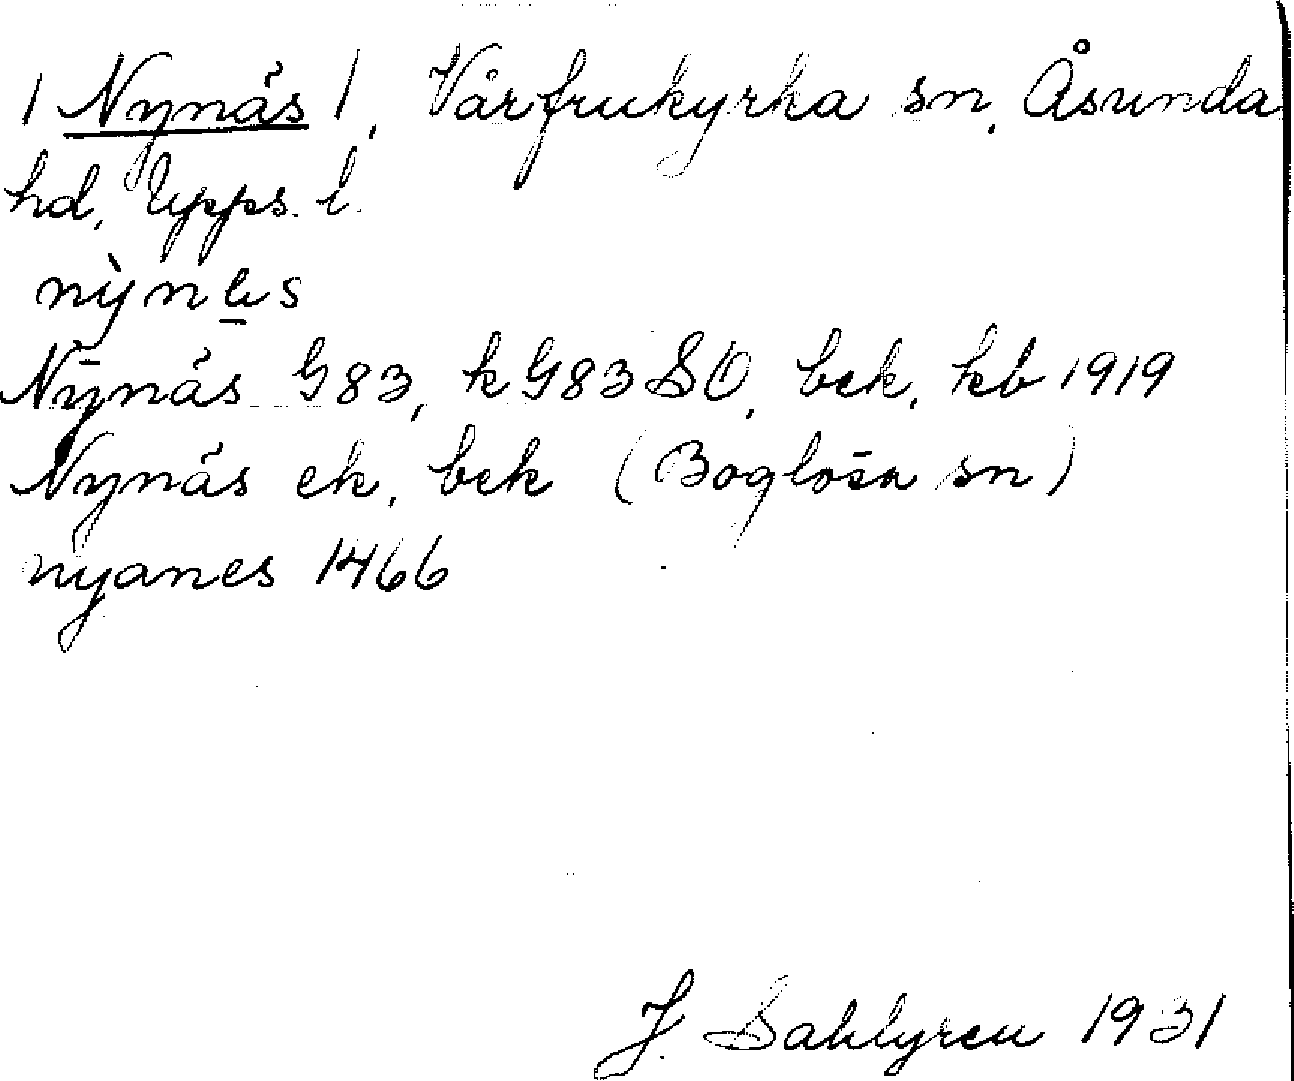 / Nynäs /, Vårfrukyrka sn, Åsunda
hd, Upps. l.
Nynäs G83, k G83 SO, bek, kb 1919
Nynäs ek, bek (Boglösa sn)
nyanes 1466
J. Sahlgren 1931